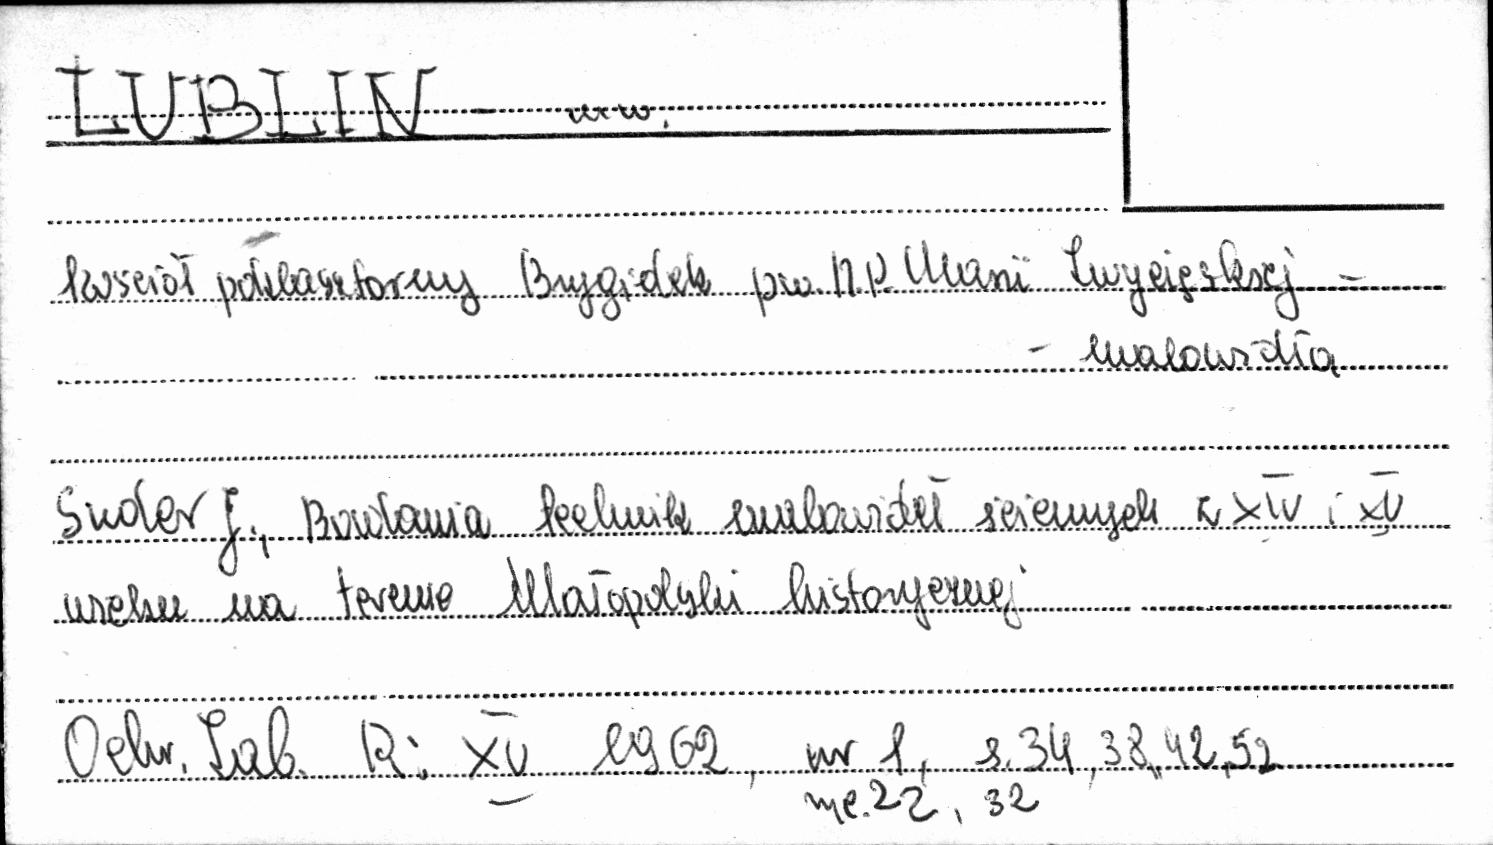 LUBLIN - mw.
kościół poklasztorny Brygidek pw. N.P. Marii Zwycięskiej -
- malowidła
Suder J., Badania technik malowideł ściennych z XIV i XV
wieku na terenie Małopolski historycznej
Ochr. Zab. R: XV 1962, nr 1, s. 34, 38, 42, 52
ryc. 22, 32